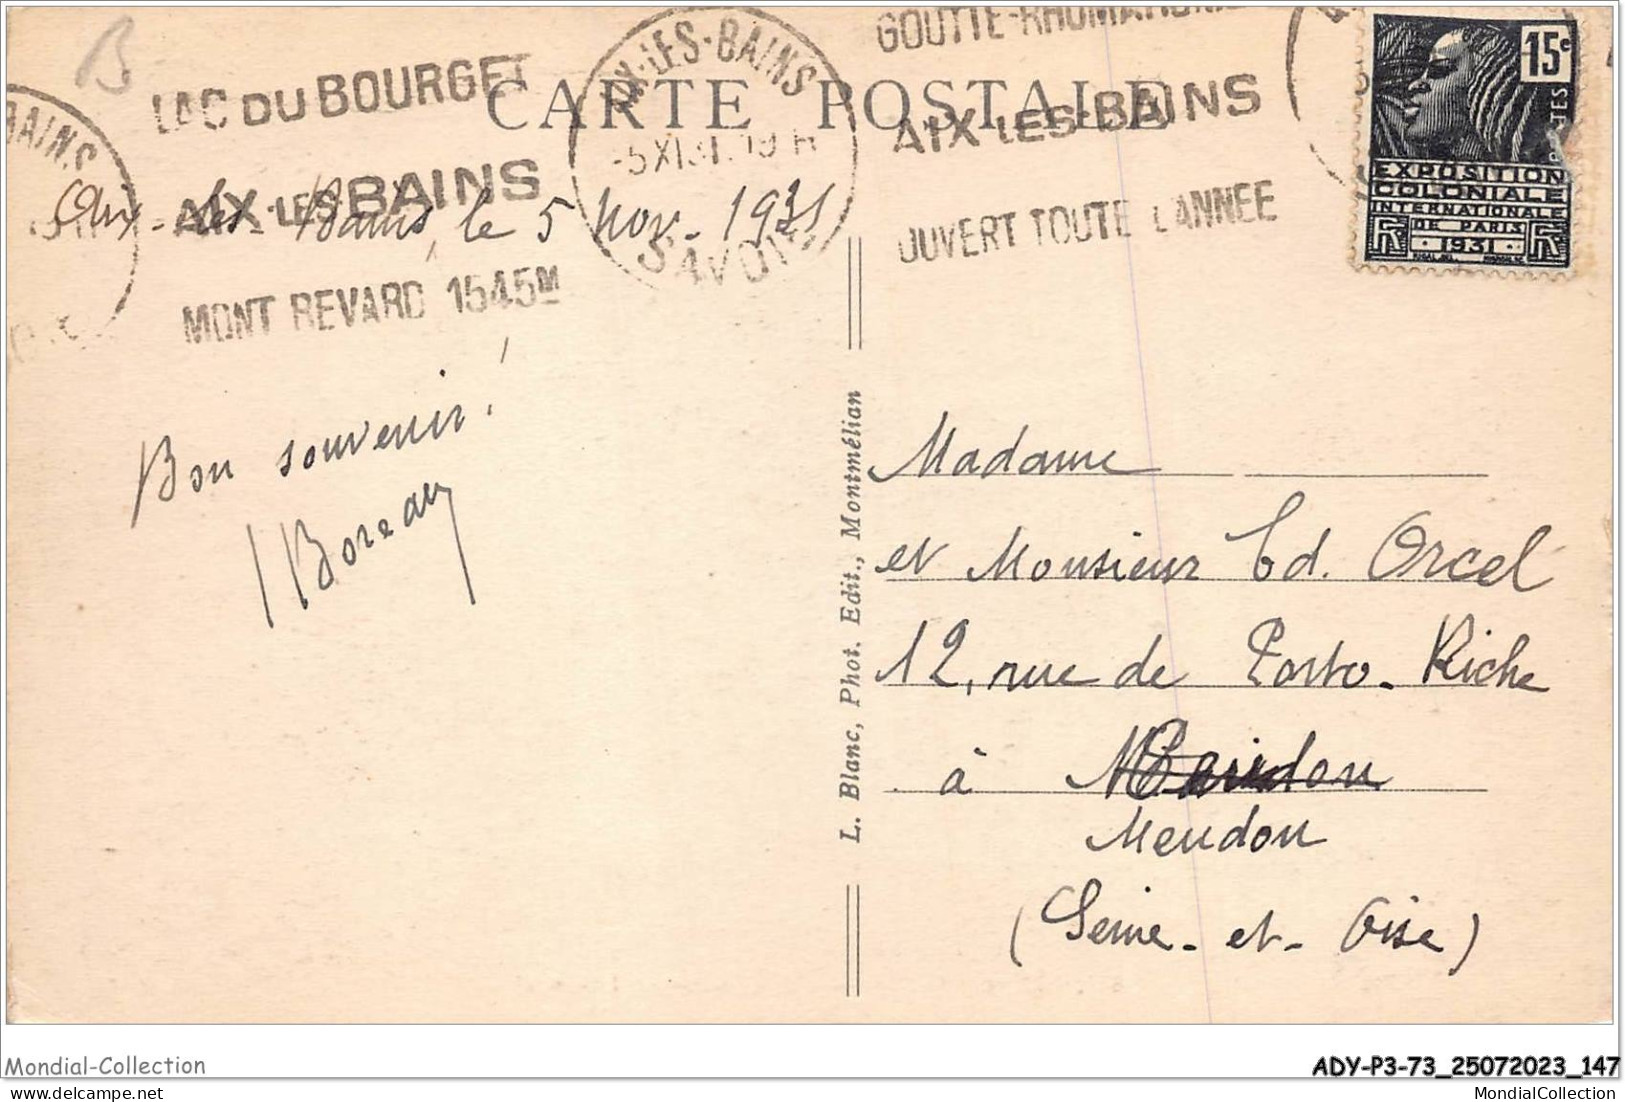 B
LAC DU BOURGET
AIX-LES-BAINS
MONT REVARD 1545M
BAINS
AIX-LES-BAINS
-5 XI 31. 19 H
SAVOIE
GOUTTE-RHUMATISME
AIX-LES-BAINS
OUVERT TOUTE L'ANNEE
CARTE POSTALE
15c
POSTES
EXPOSITION
COLONIALE
INTERNATIONALE
DE PARIS
RF · 1931 · RF
Aix-les-Bains, le 5 nov. 1931
Bon souvenir!
Boreau
L. Blanc, Phot. Edit., Montmélian
Madame
et Monsieur Ed. Orcel
12, rue de Porto-Riche
à
Meudon
(Seine-et-Oise)
Mondial-Collection
ADY-P3-73_25072023_147
MondialCollection